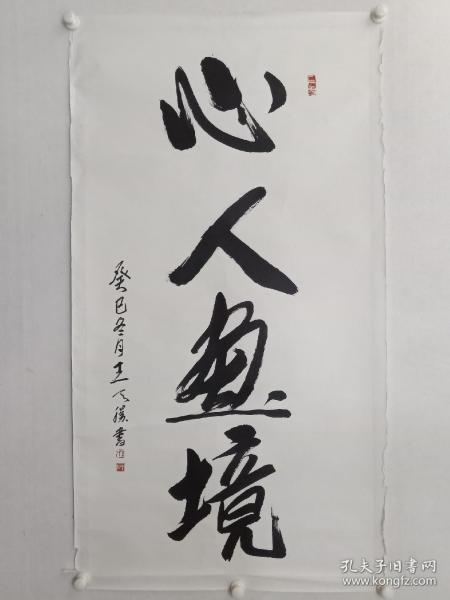 心人画境
癸巳冬月王天胜书
孔夫子旧书网
www.kongfz.com